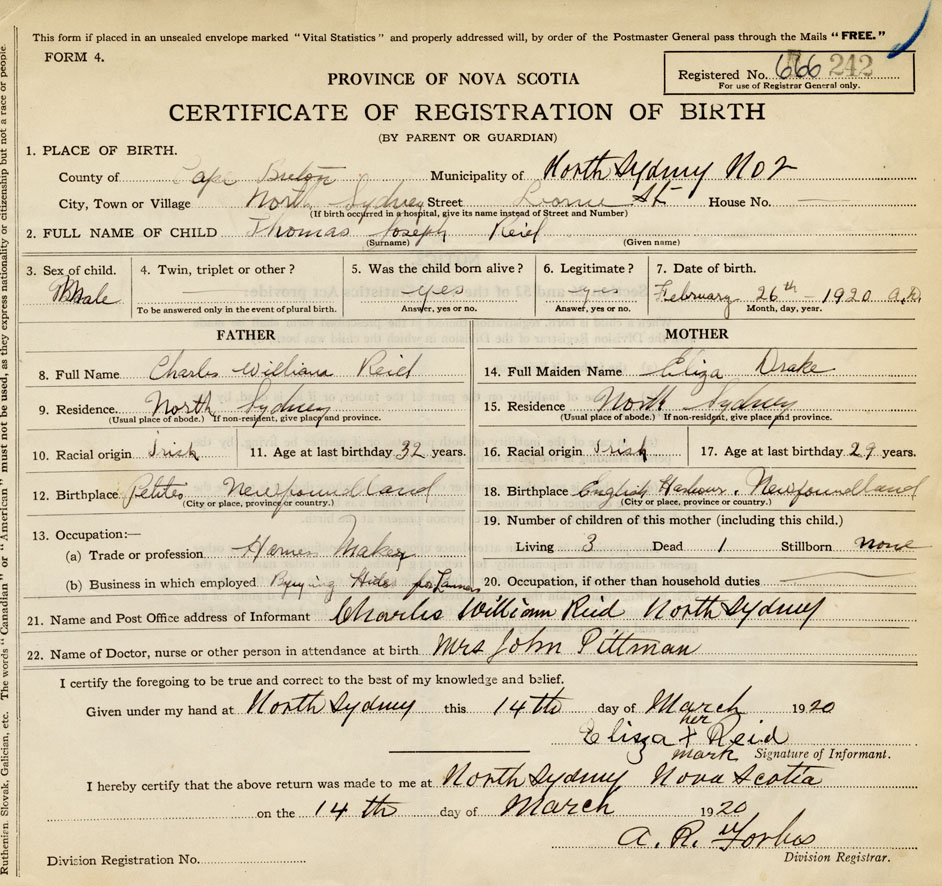 This form if placed in an unsealed envelope marked "Vital Statistics" and properly addressed will, by order of the Postmaster General pass through the Mails "FREE."
FORM 4.
Registered No. 666 242
For use of Registrar General only.
PROVINCE OF NOVA SCOTIA
CERTIFICATE OF REGISTRATION OF BIRTH
(BY PARENT OR GUARDIAN)
1. PLACE OF BIRTH.
County of Cape Breton Municipality of North Sydney No 2
City, Town or Village North Sydney Street St House No. —
(If birth occurred in a hospital, give its name instead of Street and Number)
2. FULL NAME OF CHILD Thomas Joseph Reid
(Surname) (Given name)
3. Sex of child. 4. Twin, triplet or other? 5. Was the child born alive? 6. Legitimate? 7. Date of birth.
Male — yes yes February 26th - 1920 A.D.
To be answered only in the event of plural birth. Answer, yes or no. Answer, yes or no. Month, day, year.
FATHER MOTHER
8. Full Name Charles William Reid 14. Full Maiden Name Eliza Drake
9. Residence North Sydney 15. Residence North Sydney
(Usual place of abode.) If non-resident, give place and province. (Usual place of abode.) If non-resident, give place and province.
10. Racial origin Irish 11. Age at last birthday 32 years. 16. Racial origin Irish 17. Age at last birthday 29 years.
12. Birthplace Petites Newfoundland 18. Birthplace English Harbour, Newfoundland
(City or place, province or country.) (City or place, province or country.)
19. Number of children of this mother (including this child.)
13. Occupation:—
(a) Trade or profession Harnes Maker Living 3 Dead 1 Stillborn none
(b) Business in which employed Byying Hides for 20. Occupation, if other than household duties —
21. Name and Post Office address of Informant Charles William Reid North Sydney
22. Name of Doctor, nurse or other person in attendance at birth Mrs John Pittman
I certify the foregoing to be true and correct to the best of my knowledge and belief.
Given under my hand at North Sydney this 14th day of March 1920
her
Eliza X Reid
mark Signature of Informant.
I hereby certify that the above return was made to me at North Sydney Nova Scotia
on the 14th day of March 1920
A. R. Forbes
Division Registration No. Division Registrar.
Ruthenian, Slovak, Galician, etc. The words "Canadian" or "American" must not be used, as they express nationality or citizenship but not a race or people.